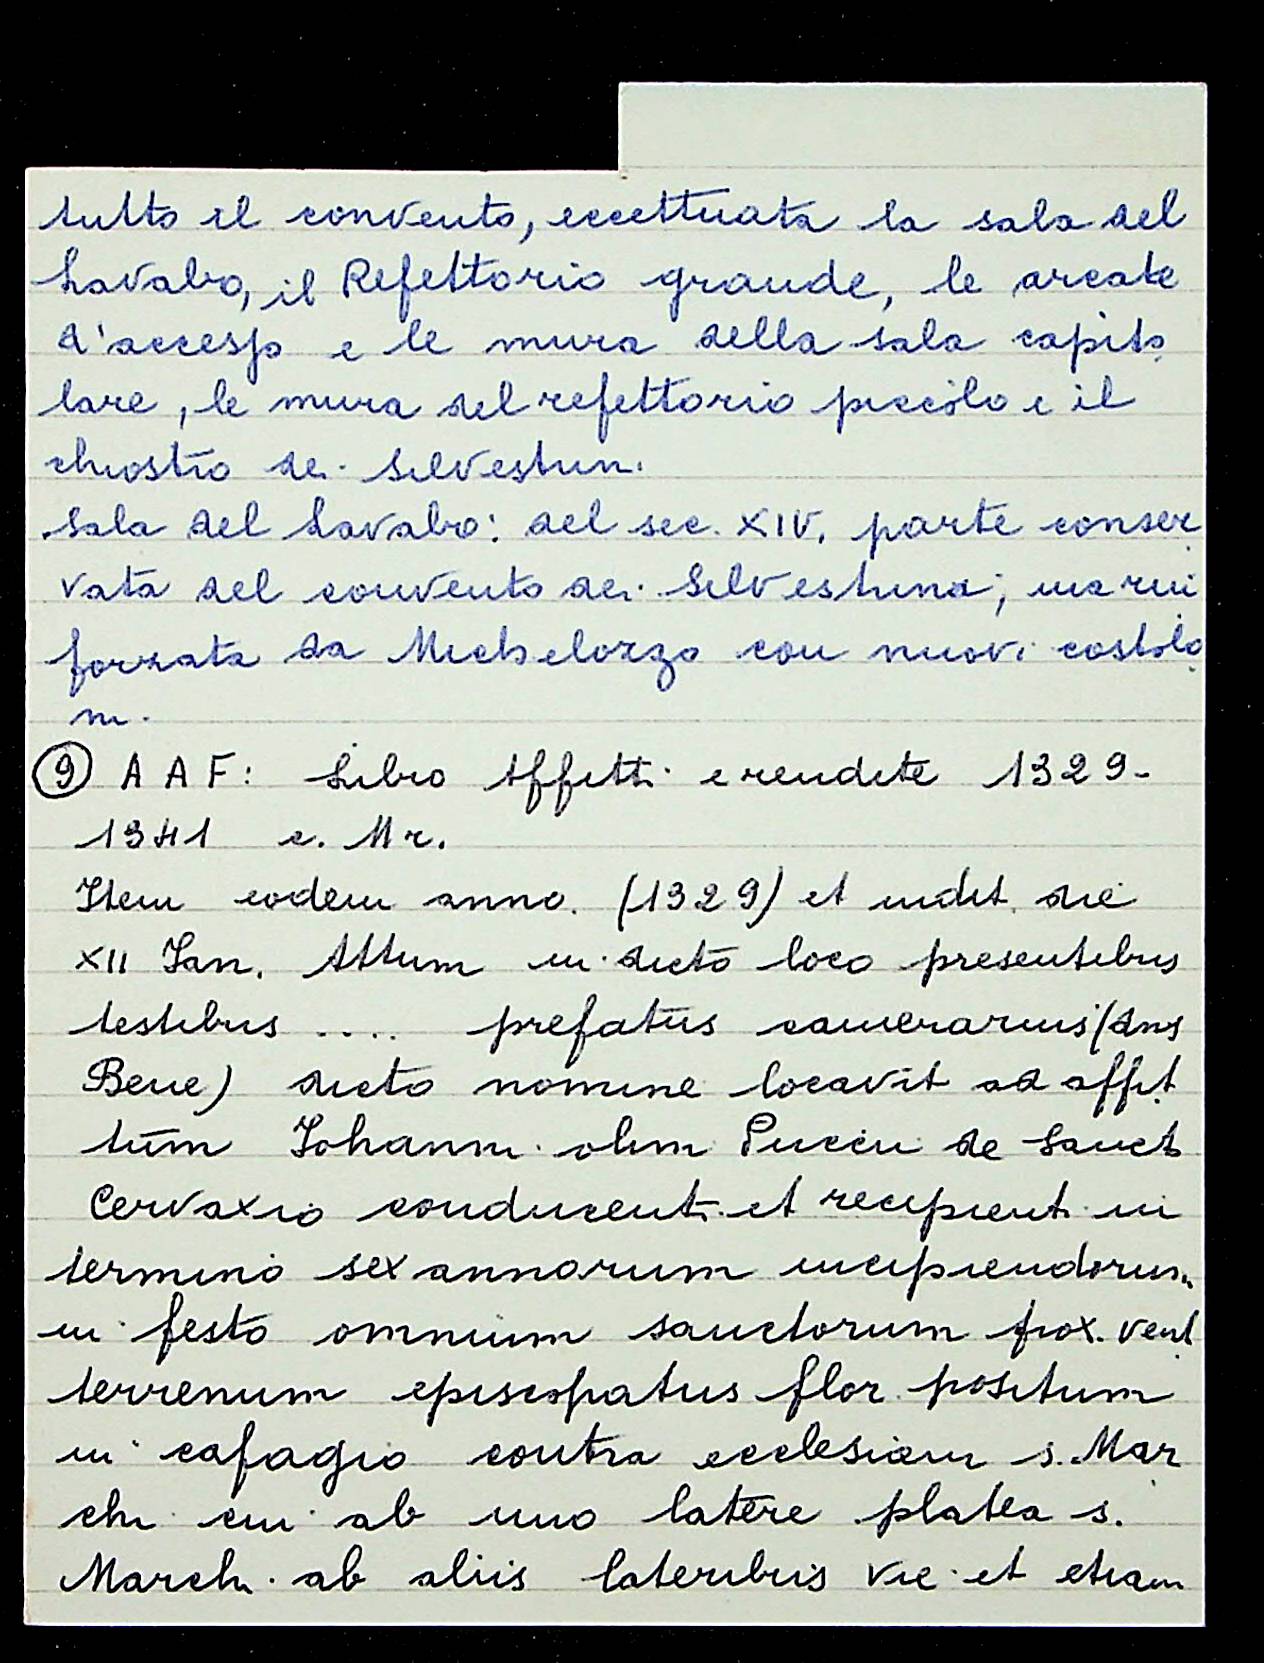 tutto il convento, eccettuata la sala del
Lavabo, il Refettorio grande, le arcate
d'accesso e le mura della sala capito
lare, le mura del refettorio piccolo e il
chiostro dei Silvestrini
Sala del Lavabo: del sec. XIV, parte conser
vata del convento dei Silvestrini, ma rin
forzata da Michelozzo con nuovi costolo
ni.
⑨ A A F: Libro Affitti e rendite 1329-
1341 c. 11r.
Item eodem anno. (1329) et indit. die
XII Ian. Attum in dicto loco presentibus
testibus .... prefatus camerarius (dns
Bene) dicto nomine locavit ad affit
tum Iohanni olim Puccii de Sancto
Cervaxio conducenti et recipienti in
termino sex annorum incipiendorum
in festo omnium sanctorum prox. vent
terrenum episcopatus flor. positum
in cafagio contra ecclesiam s. Mar
chi cui ab uno latere platea s.
Marchi ab aliis lateribus vie et etiam